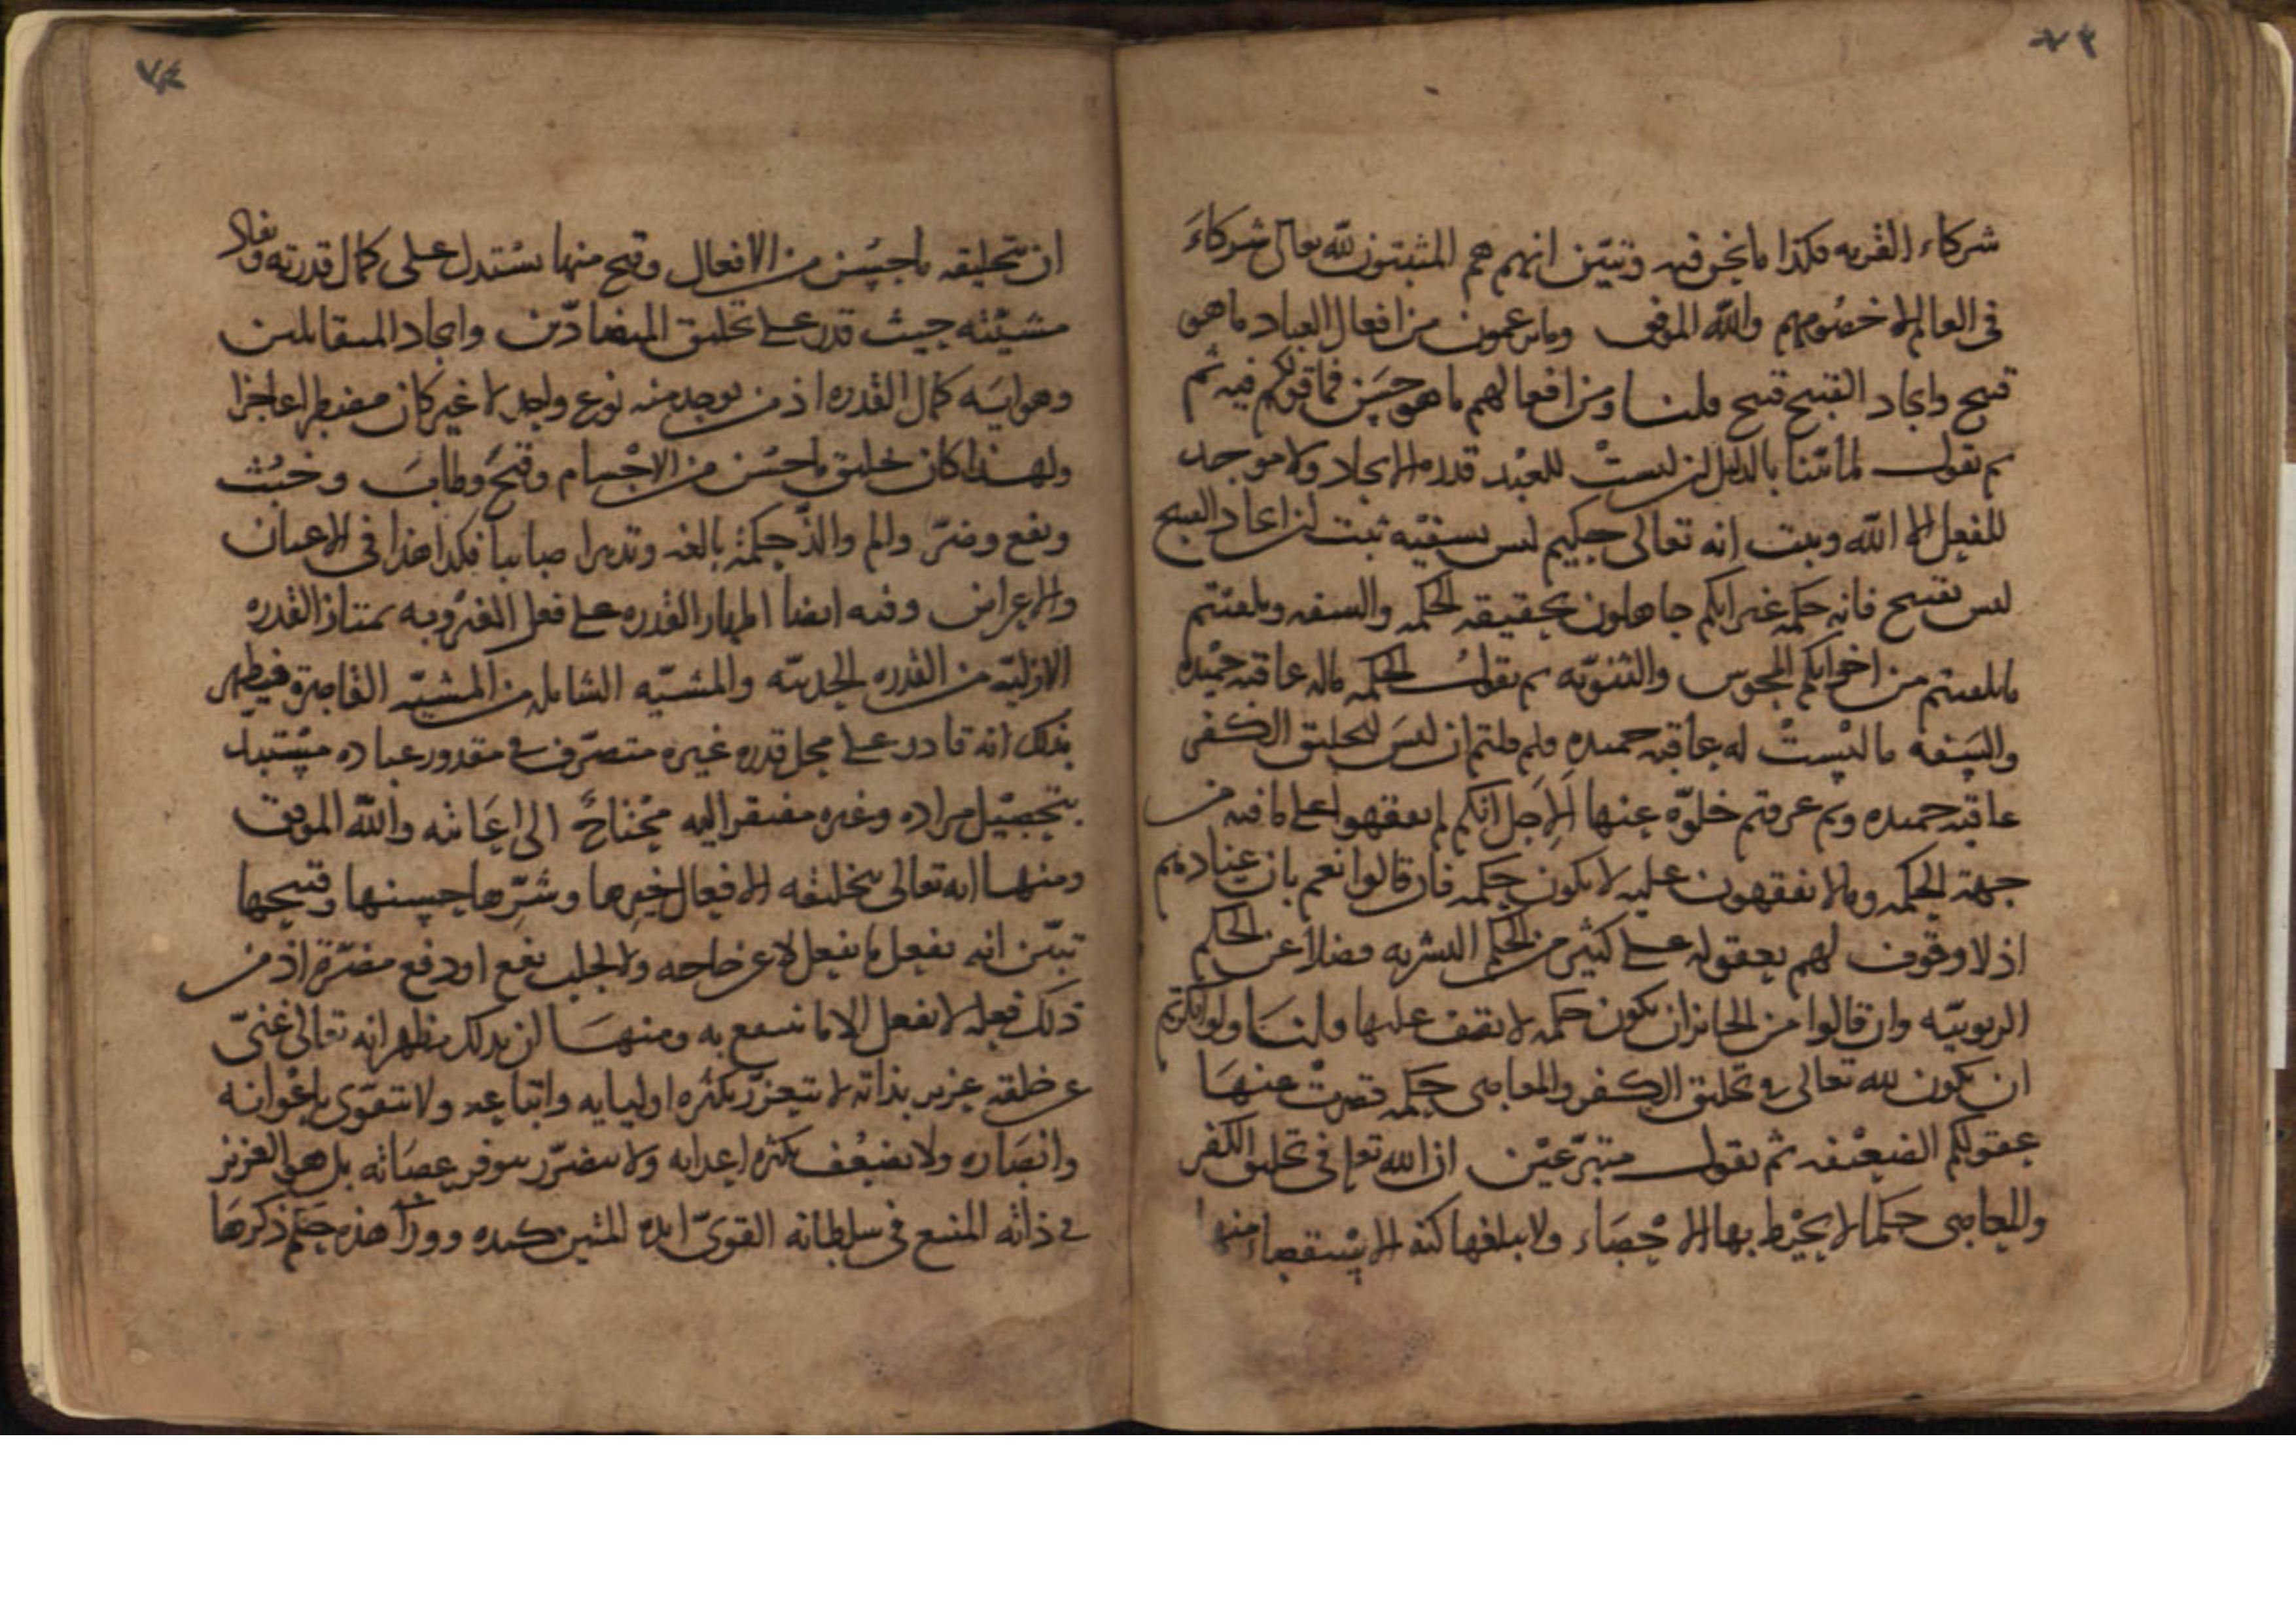 ٧٣
شركاء القريه فكذا ما نحن فيه وتبيّن انهم هم المثبتون لله تعالى شركاءَ
في العالم لا خصومهم والله الموفق وما يزعمون من افعال العباد ما هو
قبيح وايجاد القبيح قبيح قلنا ومن افعالهم ما هو حسَن فما قولكم فيه ثم
ثم نقول لما ثبتنا بالدليل ان ليستْ للعبْد قدرة الايجاد ولا موجد
للفعل الا الله وثبت انه تعالى حكيم ليس بسفيه ثبت ان ايجاد القبيح
ليس بقبيح فانه حكمه غير انكم جاهلون بحقيقه الحكمه والسفه وتلقنتم
ما تلقنتم من اخوانكم المجوس والثنويّه ثم نقول الحكمه ما له عاقبه حمْيده
والسَفه ما ليْستْ له عاقبه حميده ولم قلتم ان ليسَ لتخليق الكفر
عاقبه حميده وبم عرفتم خلوّه عنها اَلِاَجل انكم لم تفقهوا على ما فيه من
جهة الحكمه وما لا تفقهون عليه لا يكون حكمه فان قالوا نعم بان عنادهم
اذ لا وقوف لهم بعقوله على كثير من الحكم البشريه فضلا عن الحكم
الربوبيّه وان قالوا من الجائز ان يكون حكمه لا نقف عليها قلنا ولو انكرتم
ان يكون لله تعالى في تخليق الكفر والمعاصي حكمه قصرتْ عنهَا
عقولكم الضعيْفه ثم نقول متبرّعيْن ان الله تعالى في تخليق الكفر
والمعاصي حكما لا يحيْط بها الاحصَاء ولا يبلغها كنه الاستقصاء منها
٧٤
ان بتخليقه ما حسُن من الافعال وقبح منها يسْتدل على كمال قدرته ونفاد
مشيّئته حيث قدر على تخليق المتضادّين وايجاد المتقابلين
وهو ايَه كمال القدره اذ من يوجد منه نوع واحد لا غير كان مضطرا عاجزا
ولهذا كان خليق ما حسُن من الاجسام وقبُحَ وطابَ وخبُث
ونفع وضرّ والم والذّ حكمة بالغه وتدبيرا صايبا فكذا هذا في الاعيان
والاعراض وفيه ايضا اظهار القدره على فعل الغير وبه تمتاز القدره
الازليّه من القدره الحديثه والمشيّه الشامله من المشيّه القاصرة فيظهر
بذلك انه قادر على محل قدره غيره متصرّف في مقدور عباده مسْتبد
بتحصيْل مراده وغيره مفتقر اليه محْتاجٌ الى اعَانته والله الموفق
ومنها انه تعالى بخليقه الافعال خيرِها وشرِّها حسنها وقبيحها
تبيّن انه يفعل ما يفعل لا عن حاجه ولا لجلب نفع او دفع مضرّة اذ من
ذلك فعله لا يفعل الا ما ينتفع به ومنهَا ان بذلك يظهر انه تعالى غنىّ
عن خلقه عزيز بذاته لا يتعزّز بكثره اوليايه واتباعه ولا يتقوّى باعْوانه
وانصَاره ولا يضعُف بكثره اعدايه ولا يتضرّر بتوفر عصَاته بل هو العزيز
في ذاته المنيع في سلطانه القوىّ ايده المتين كيده ووراَ هذه حكم ذكرهَا